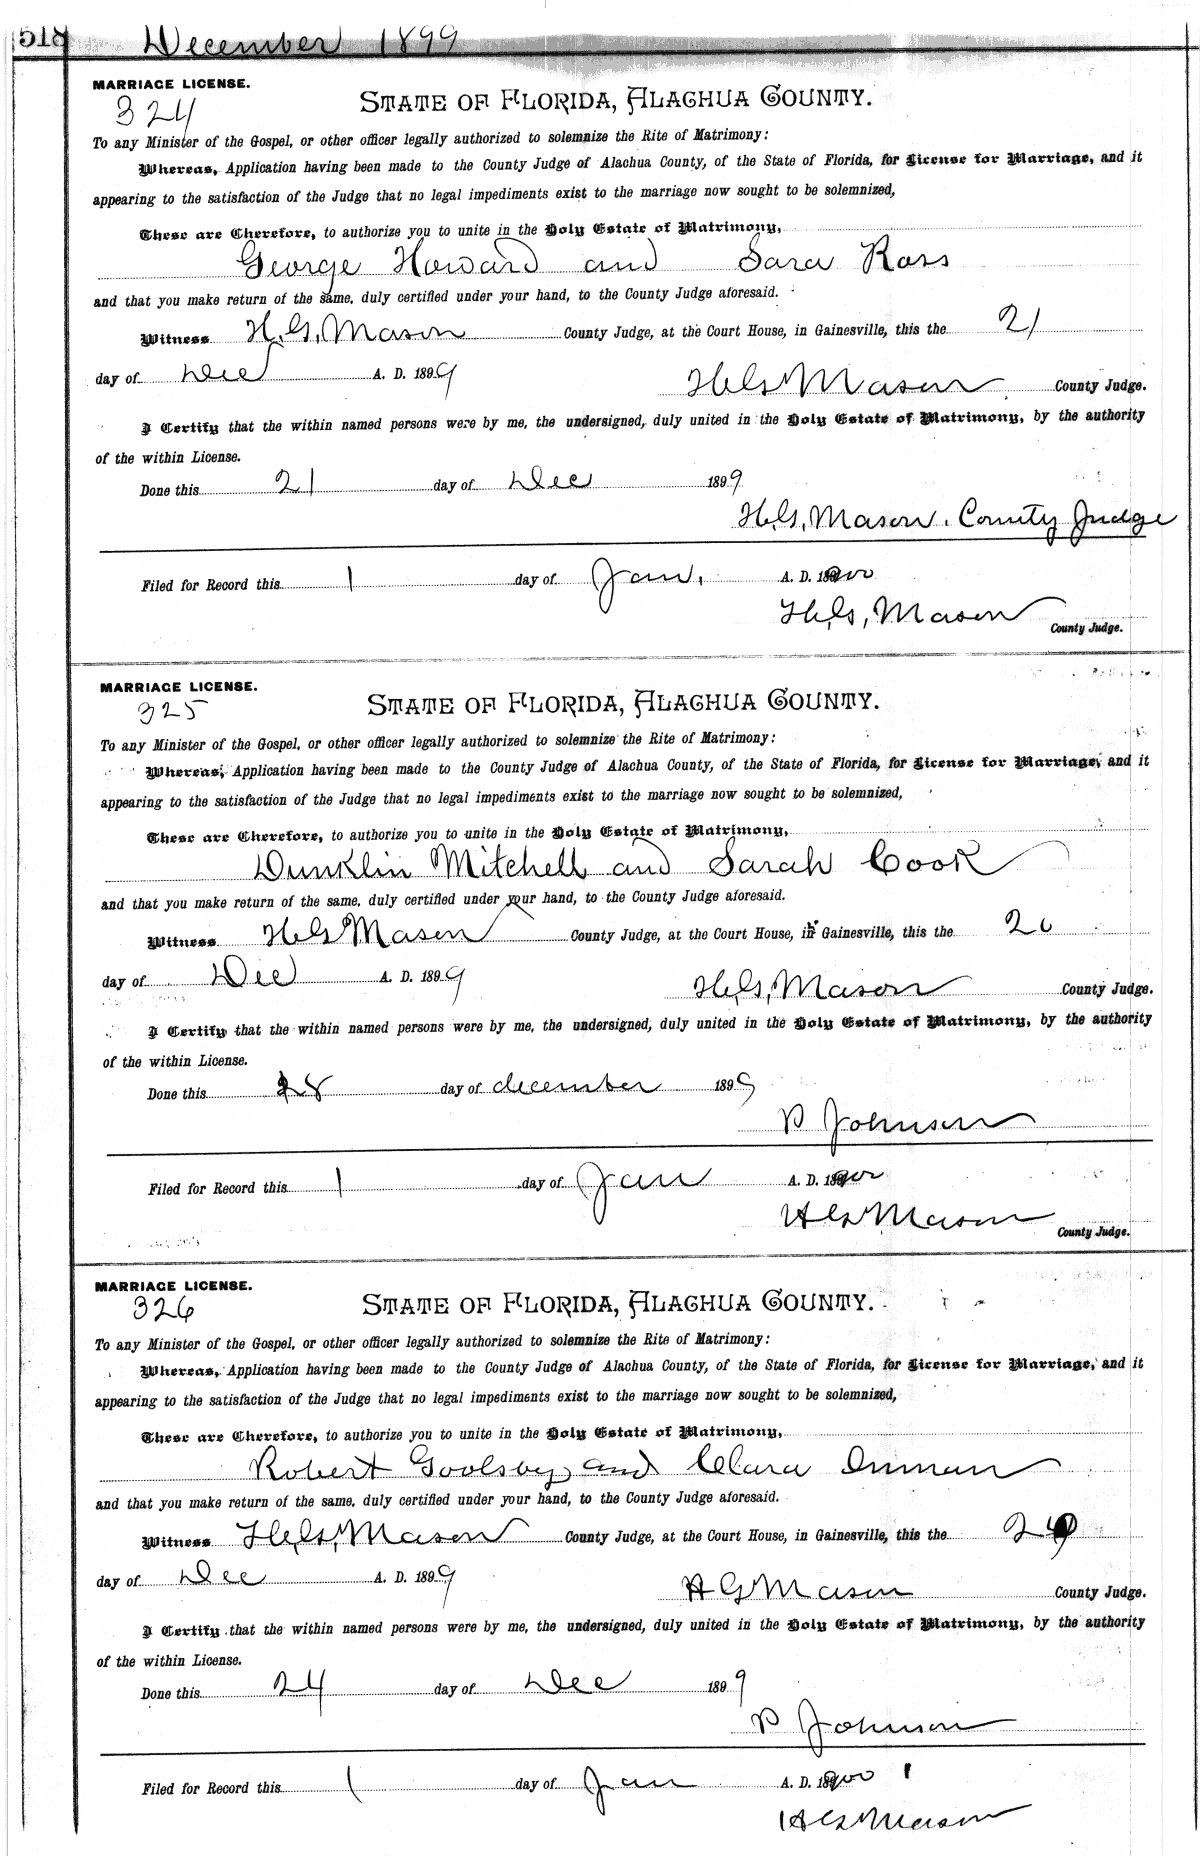 December 1899
MARRIAGE LICENSE.
324
STATE OF FLORIDA, ALACHUA COUNTY.
To any Minister of the Gospel, or other officer legally authorized to solemnize the Rite of Matrimony:
Whereas, Application having been made to the County Judge of Alachua County, of the State of Florida, for License for Marriage, and it
appearing to the satisfaction of the Judge that no legal impediments exist to the marriage now sought to be solemnized,
These are Therefore, to authorize you to unite in the Holy Estate of Matrimony,
George Howard and Sara Ross
and that you make return of the same, duly certified under your hand, to the County Judge aforesaid.
Witness H.G. Mason County Judge, at the Court House, in Gainesville, this the 21
day of Dec A. D. 1899 H.G. Mason County Judge.
I Certify that the within named persons were by me, the undersigned, duly united in the Holy Estate of Matrimony, by the authority
of the within License.
Done this 21 day of Dec 1899
H.G. Mason. County Judge
Filed for Record this 1 day of Jan. A. D. 1900
H.G. Mason
County Judge.
MARRIAGE LICENSE.
325
STATE OF FLORIDA, ALACHUA COUNTY.
To any Minister of the Gospel, or other officer legally authorized to solemnize the Rite of Matrimony:
Whereas, Application having been made to the County Judge of Alachua County, of the State of Florida, for License for Marriage, and it
appearing to the satisfaction of the Judge that no legal impediments exist to the marriage now sought to be solemnized,
These are Therefore, to authorize you to unite in the Holy Estate of Matrimony,
Dunklin Mitchell and Sarah Cook
and that you make return of the same, duly certified under your hand, to the County Judge aforesaid.
Witness H G Mason County Judge, at the Court House, in Gainesville, this the 20
day of Dec A. D. 1899 H.G. Mason County Judge.
I Certify that the within named persons were by me, the undersigned, duly united in the Holy Estate of Matrimony, by the authority
of the within License.
Done this 28 day of december 1899
P Johnson
Filed for Record this 1 day of Jan A. D. 1900
H G Mason
County Judge.
MARRIAGE LICENSE.
326
STATE OF FLORIDA, ALACHUA COUNTY.
To any Minister of the Gospel, or other officer legally authorized to solemnize the Rite of Matrimony:
Whereas, Application having been made to the County Judge of Alachua County, of the State of Florida, for License for Marriage, and it
appearing to the satisfaction of the Judge that no legal impediments exist to the marriage now sought to be solemnized,
These are Therefore, to authorize you to unite in the Holy Estate of Matrimony,
Robert Goolsby and Clara Inman
and that you make return of the same, duly certified under your hand, to the County Judge aforesaid.
Witness H.G. Mason County Judge, at the Court House, in Gainesville, this the
day of Dec A. D. 1899 H G Mason County Judge.
I Certify that the within named persons were by me, the undersigned, duly united in the Holy Estate of Matrimony, by the authority
of the within License.
Done this 24 day of Dec 1899
P Johnson
Filed for Record this 1 day of Jan A. D. 1900
H G Mason